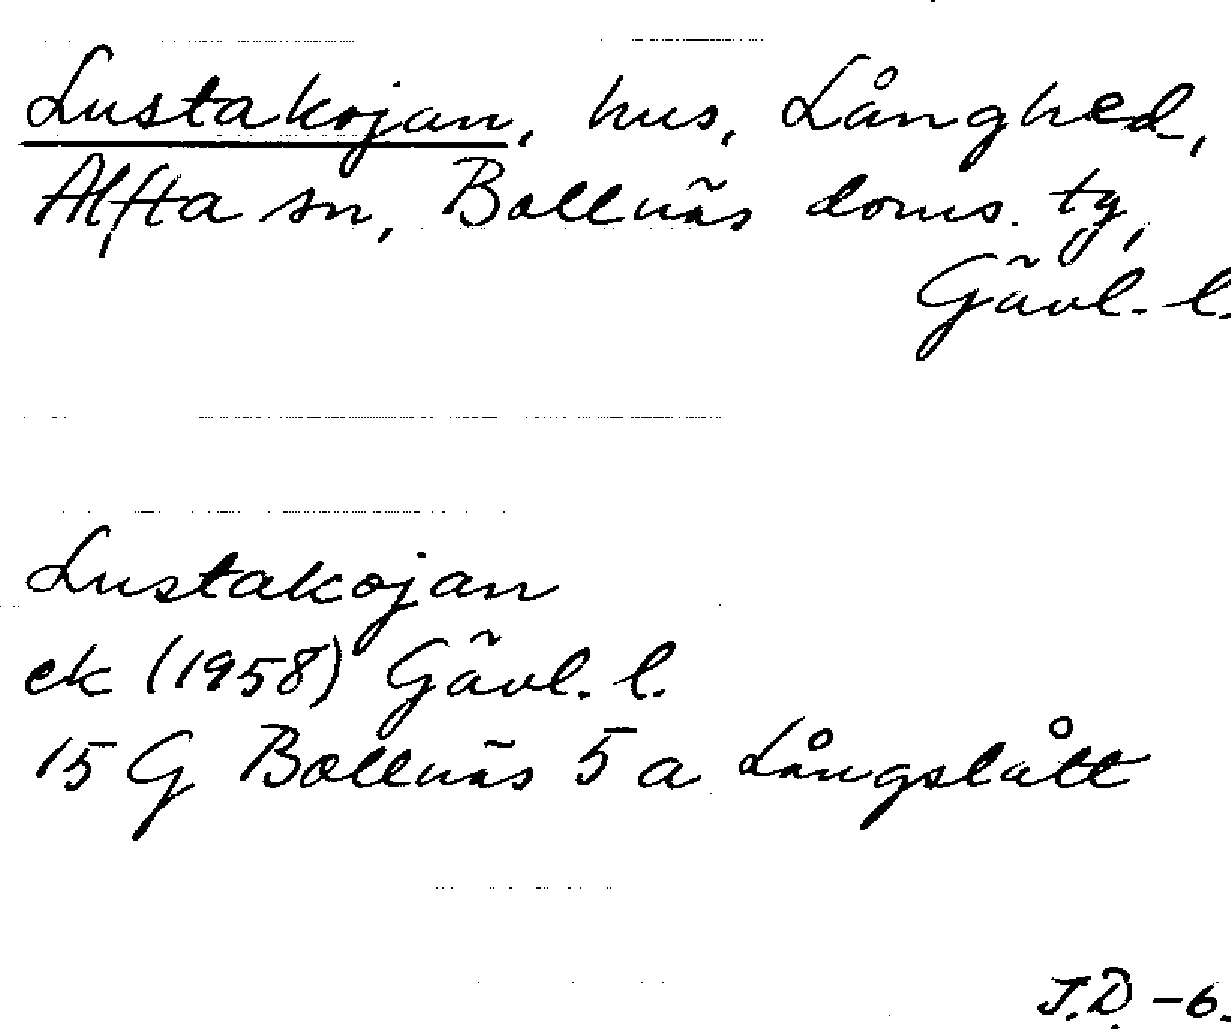 Lustakojan, hus, Långhed,
Alfta sn, Bollnäs doms. tg,
Gävl. l.
Lustakojan
ek (1958) Gävl. l.
15 G Bollnäs 5 a Långslått
J.D. -6.